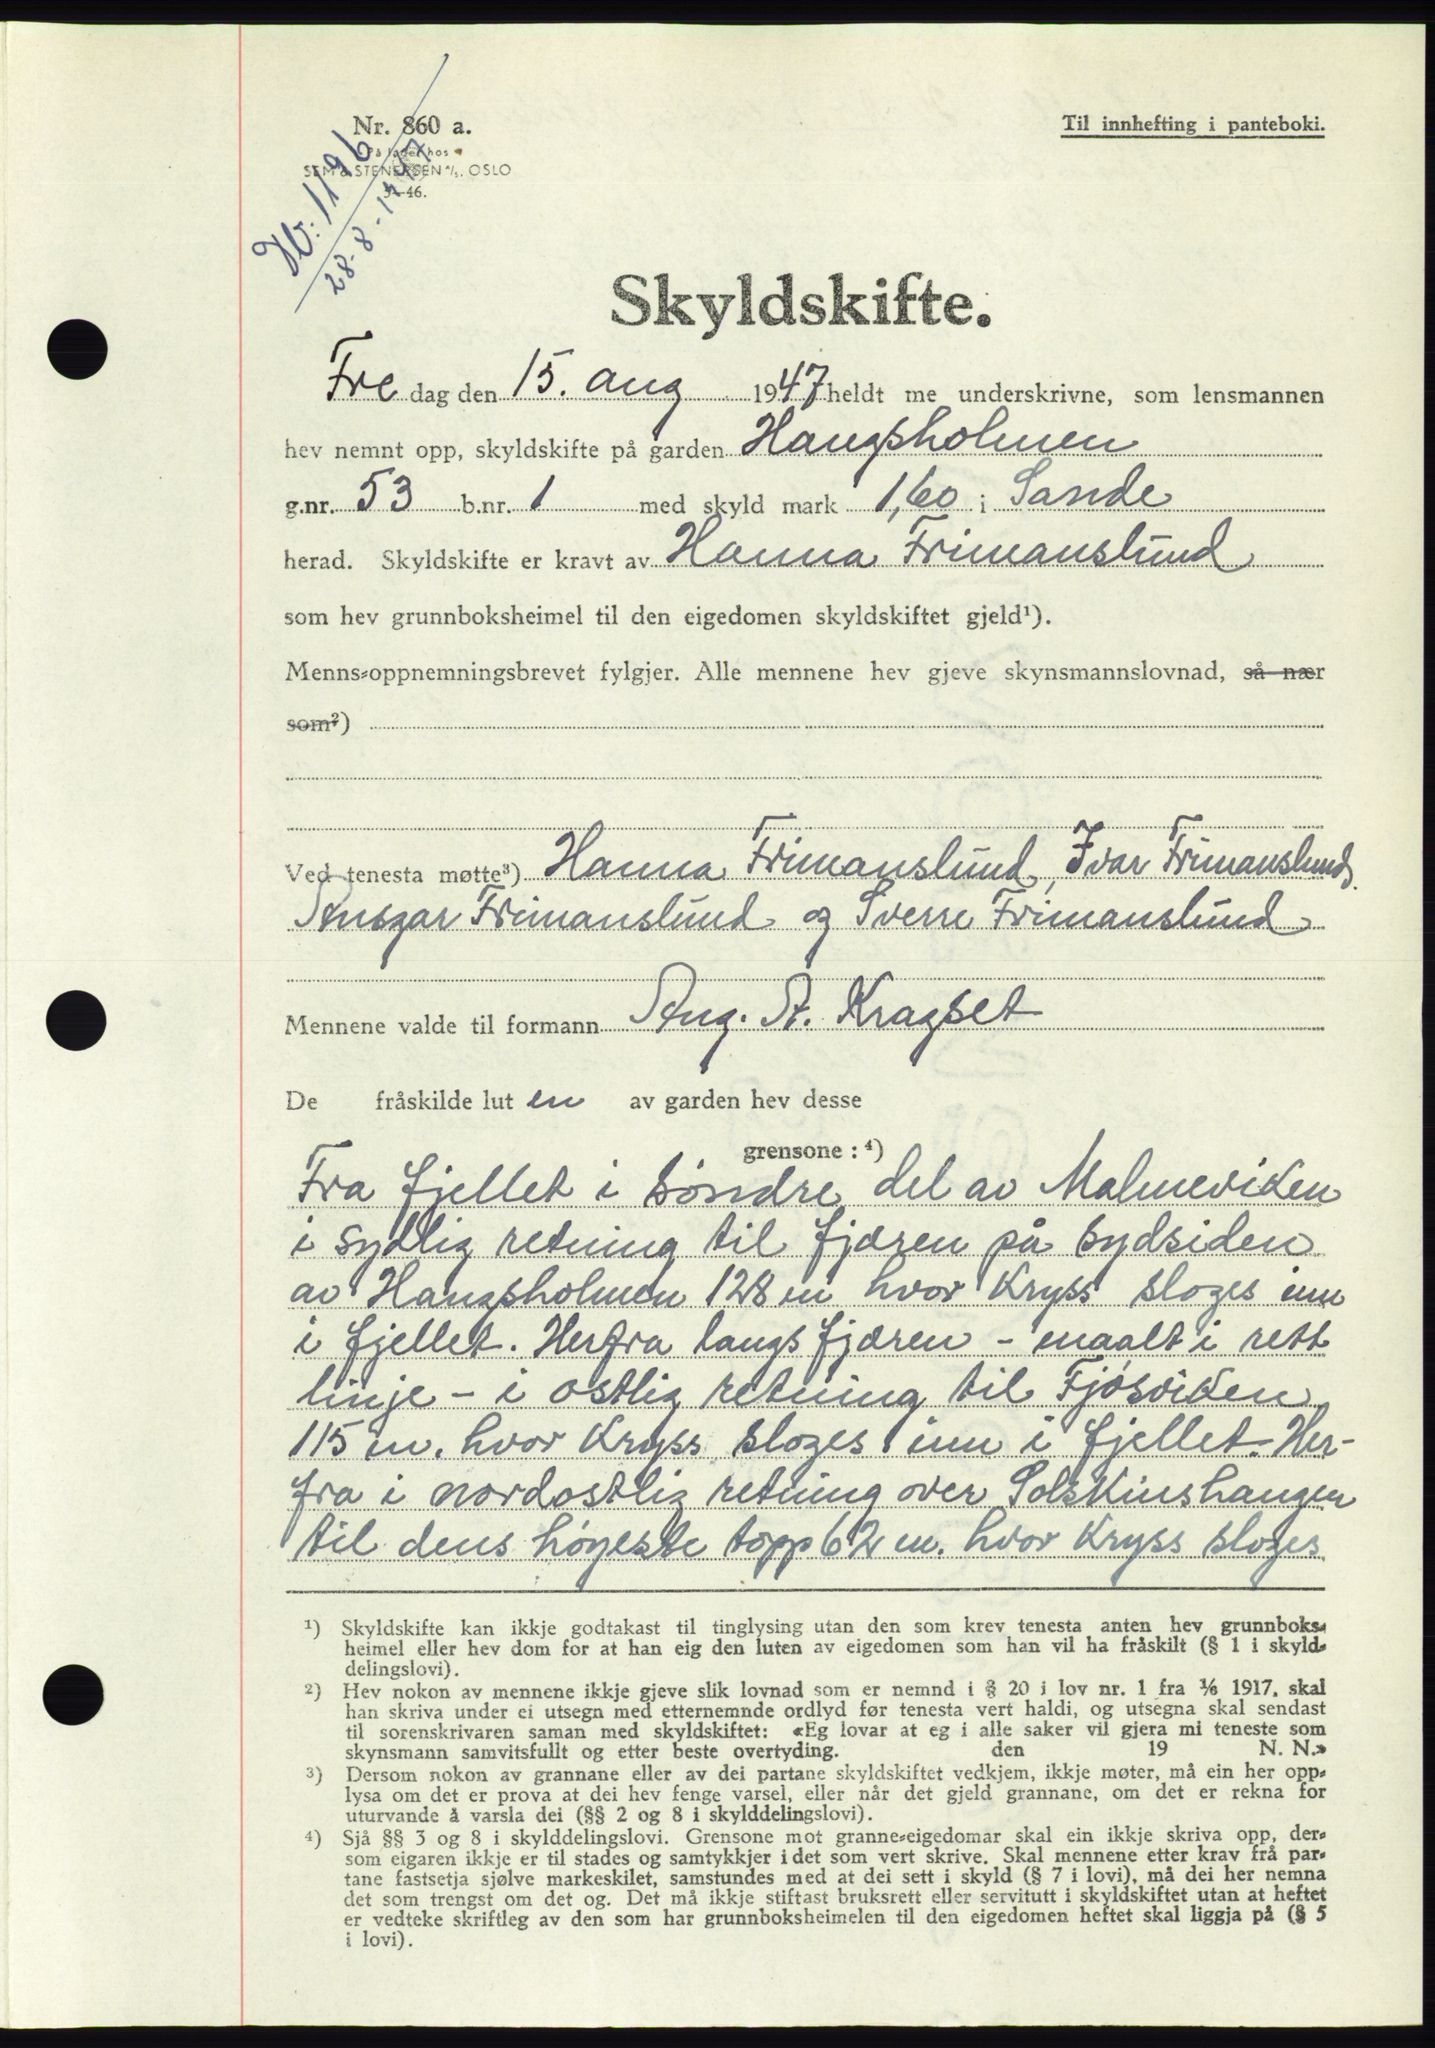 Nr. 860 a.
På lager hos
SEM & STENERSEN A/S, OSLO
3-46.
Til innhefting i panteboki.
Nr: 1196
28-8-1947
Skyldskifte.
Fre dag den 15. aug 1947 heldt me underskrivne, som lensmannen
hev nemnt opp, skyldskifte på garden Haugsholmen
g.nr. 53 b.nr. 1 med skyld mark 1,60 i Sande
herad. Skyldskifte er kravt av Hanna Frimanslund
som hev grunnboksheimel til den eigedomen skyldskiftet gjeld¹).
Menns-oppnemningsbrevet fylgjer. Alle mennene hev gjeve skynsmannslovnad, så nær
som²)
Ved tenesta møtte³) Hanna Frimanslund, Ivar Frimanslund,
Ansgar Frimanslund og Sverre Frimanslund
Mennene valde til formann Aug. A. Kragset
De fråskilde lut en av garden hev desse
grensone : ⁴)
Fra fjellet i søndre del av Malmeviken
i sydlig retning til fjæren på sydsiden
av Haugsholmen 128 m hvor Kryss sloges inn
i fjellet. Herfra langs fjæren - maalt i rett
linje - i ostlig retning til Fjøsviken
115 m. hvor Kryss sloges inn i fjellet. Her-
fra i nordostlig retning over Solskinshaugen
til dens høyeste topp 62 m. hvor Kryss sloges
¹) Skyldskifte kan ikkje godtakast til tinglysing utan den som krev tenesta anten hev grunnboks-
heimel eller hev dom for at han eig den luten av eigedomen som han vil ha fråskilt (§ 1 i skyld-
delingslovi).
²) Hev nokon av mennene ikkje gjeve slik lovnad som er nemnd i § 20 i lov nr. 1 fra 1/6 1917, skal
han skriva under ei utsegn med etternemnde ordlyd før tenesta vert haldi, og utsegna skal sendast
til sorenskrivaren saman med skyldskiftet: «Eg lovar at eg i alle saker vil gjera mi teneste som
skynsmann samvitsfullt og etter beste overtyding. den 19 N. N.»
³) Dersom nokon av grannane eller av dei partane skyldskiftet vedkjem, ikkje møter, må ein her opp-
lysa om det er prova at dei hev fenge varsel, eller når det gjeld grannane, om det er rekna for
uturvande å varsla dei (§§ 2 og 8 i skylddelingslovi).
⁴) Sjå §§ 3 og 8 i skylddelingslovi. Grensone mot granne-eigedomar skal ein ikkje skriva opp, der-
som eigaren ikkje er til stades og samtykkjer i det som vert skrive. Skal mennene etter krav frå par-
tane fastsetja sjølve markeskilet, samstundes med at dei sett i skyld (§ 7 i lovi), må dei her nemna
det som trengst om det og. Det må ikkje stiftast bruksrett eller servitutt i skyldskiftet utan at heftet
er vedteke skriftleg av den som har grunnboksheimelen til den eigedomen heftet skal liggja på (§ 5
i lovi).